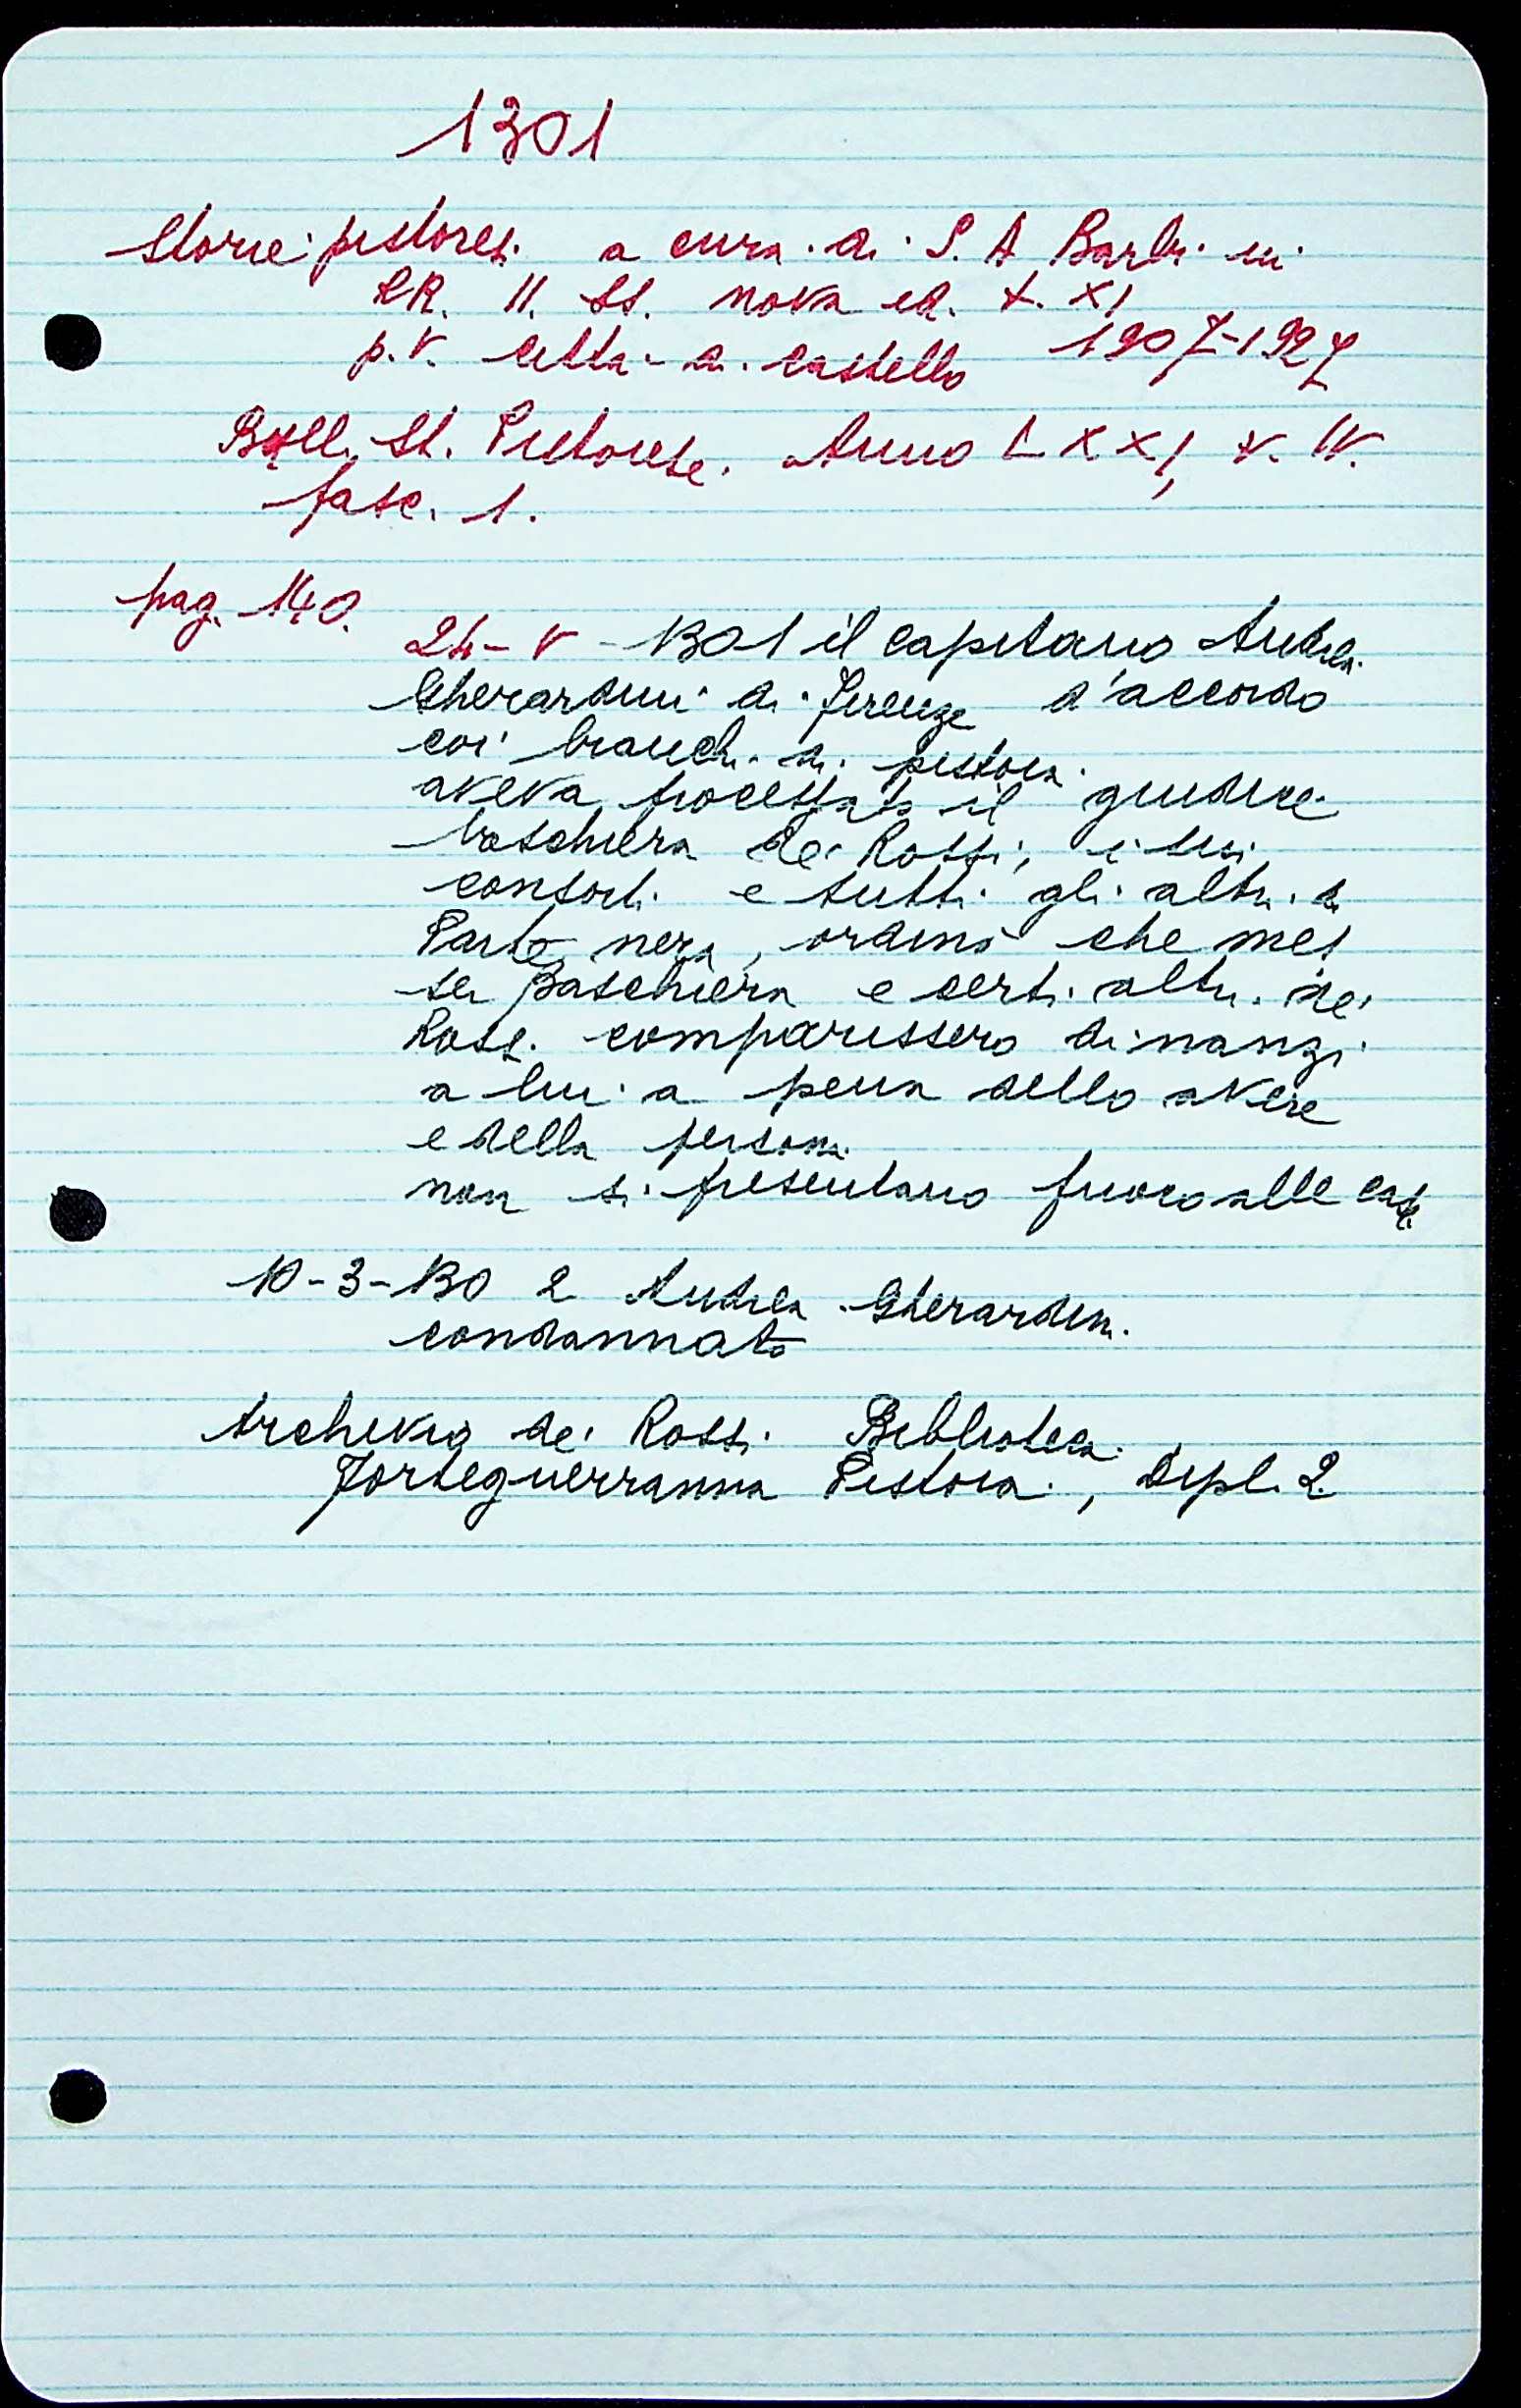 1301
Storie pistoresi a cura di S. A Barbi in
RR. II. SS. nova ed. t. XI
p. V. città di castello 1907-1927
Bull. St. Pistoiese. Anno LXXI, v. IV.
fasc. 1.
pag. 140.
24-V-1301 il capitano Andrea
Gherardini di Firenze d'accordo
coi bianchi di pistoia
aveva processato il giudice
baschiera de' Rossi, i suoi
consorti e tutti gli altri di
Parte nera, ordinò che mes
ser Baschiera e certi altri de'
Rossi comparissero dinanzi
a lui a pena dello avere
e della persona
non si presentano fuoco alle case
10-3-1302 Andrea Gherardini
condannato
Archivio de' Rossi Biblioteca
Forteguerranna Pistoia, Dipl. 2